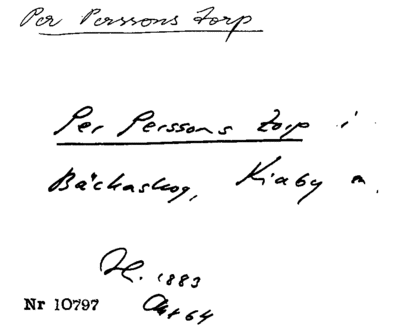 Per Perssons torp
Per Perssons torp i
Bäckaskog, Kiaby
1883
Nr 10797
64